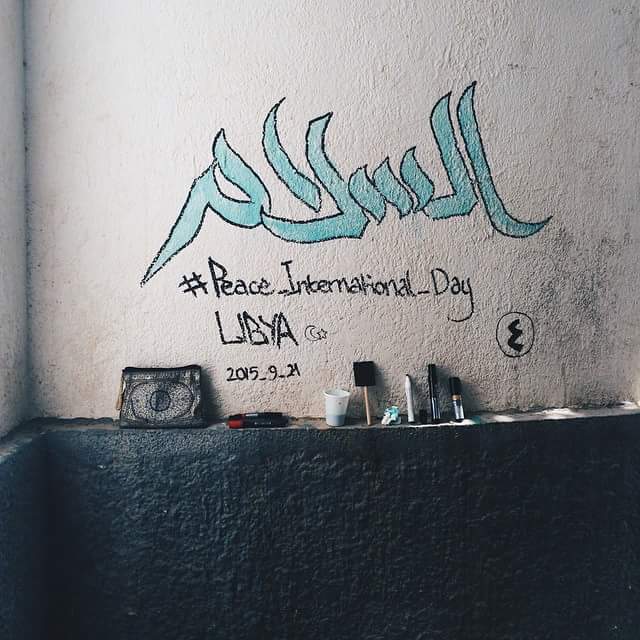 السلام
#Peace_International_Day
LIBYA
2015_9_21
٤